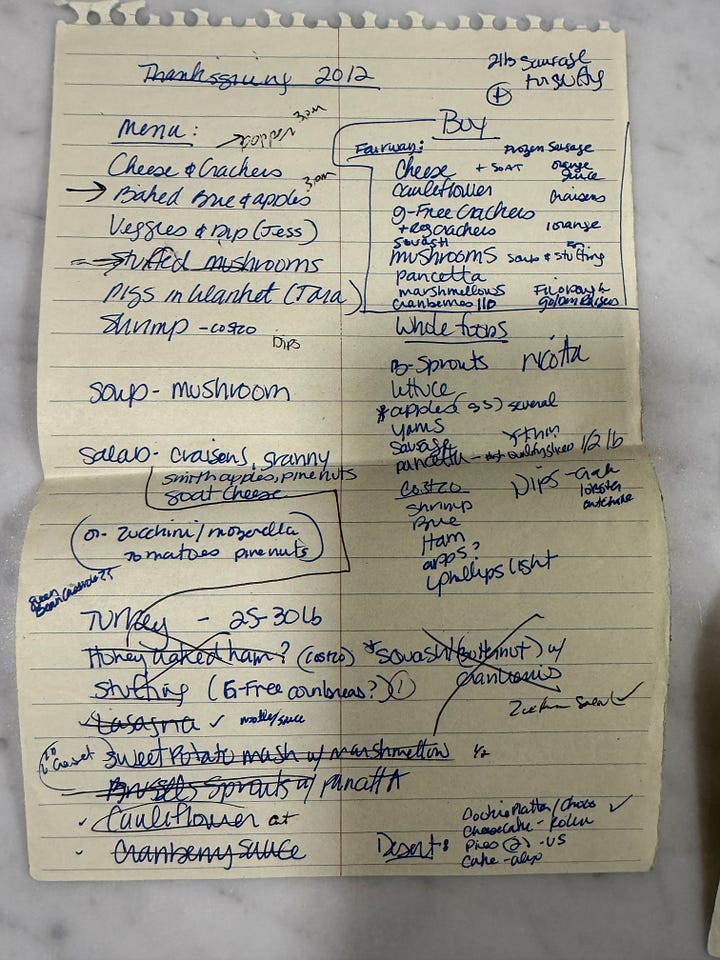 Thanksgiving 2012
2 lb Sausage
Menu:
3pm
Cheese & Crackers
→ Baked Brie & apples 3pm
Veggies & Dip (Jess)
Stuffed mushrooms
Pigs in blanket (Tara)
Shrimp - costco
Dips
Soup - mushroom
Salad - craisens, granny
smith apples, pinenuts
goat cheese
(or - zucchini/mozerella
tomatoes pinenuts)
green
Bean Casserole??
Turkey - 25-30 lb
Honey baked ham? (costco)
Stuffing (G-Free cornbread?) 1
Lasagna ✓
Sweet Potato mash w/ marshmellow 1/2
Brussels Sprouts w/ pancetta
✓ Cauliflower
Cranberry sauce
Buy
Fairway:
Frozen Sausage
Cheese + goat
orange
juice
Cauliflower
Craisens
g-Free Crackers
+ reg crackers
1 orange
squash
mushrooms soup & stuffing
pancetta
marshmellows
cranberries 1 lb
golden raisens
Whole foods
B-Sprouts
ricotta
lettuce
* apples (gs) several
yams
sausage
pancetta - 1/2 lb
thin
Costco
Dips - crab
lobster
artichoke
shrimp
Brie
Ham
apps?
phillips light
* Squash (Butternut) w/
cranberries
✓
Desert:
Cookie Platter/choco ✓
cheesecake -
Pies (2) - US
Cake - alex